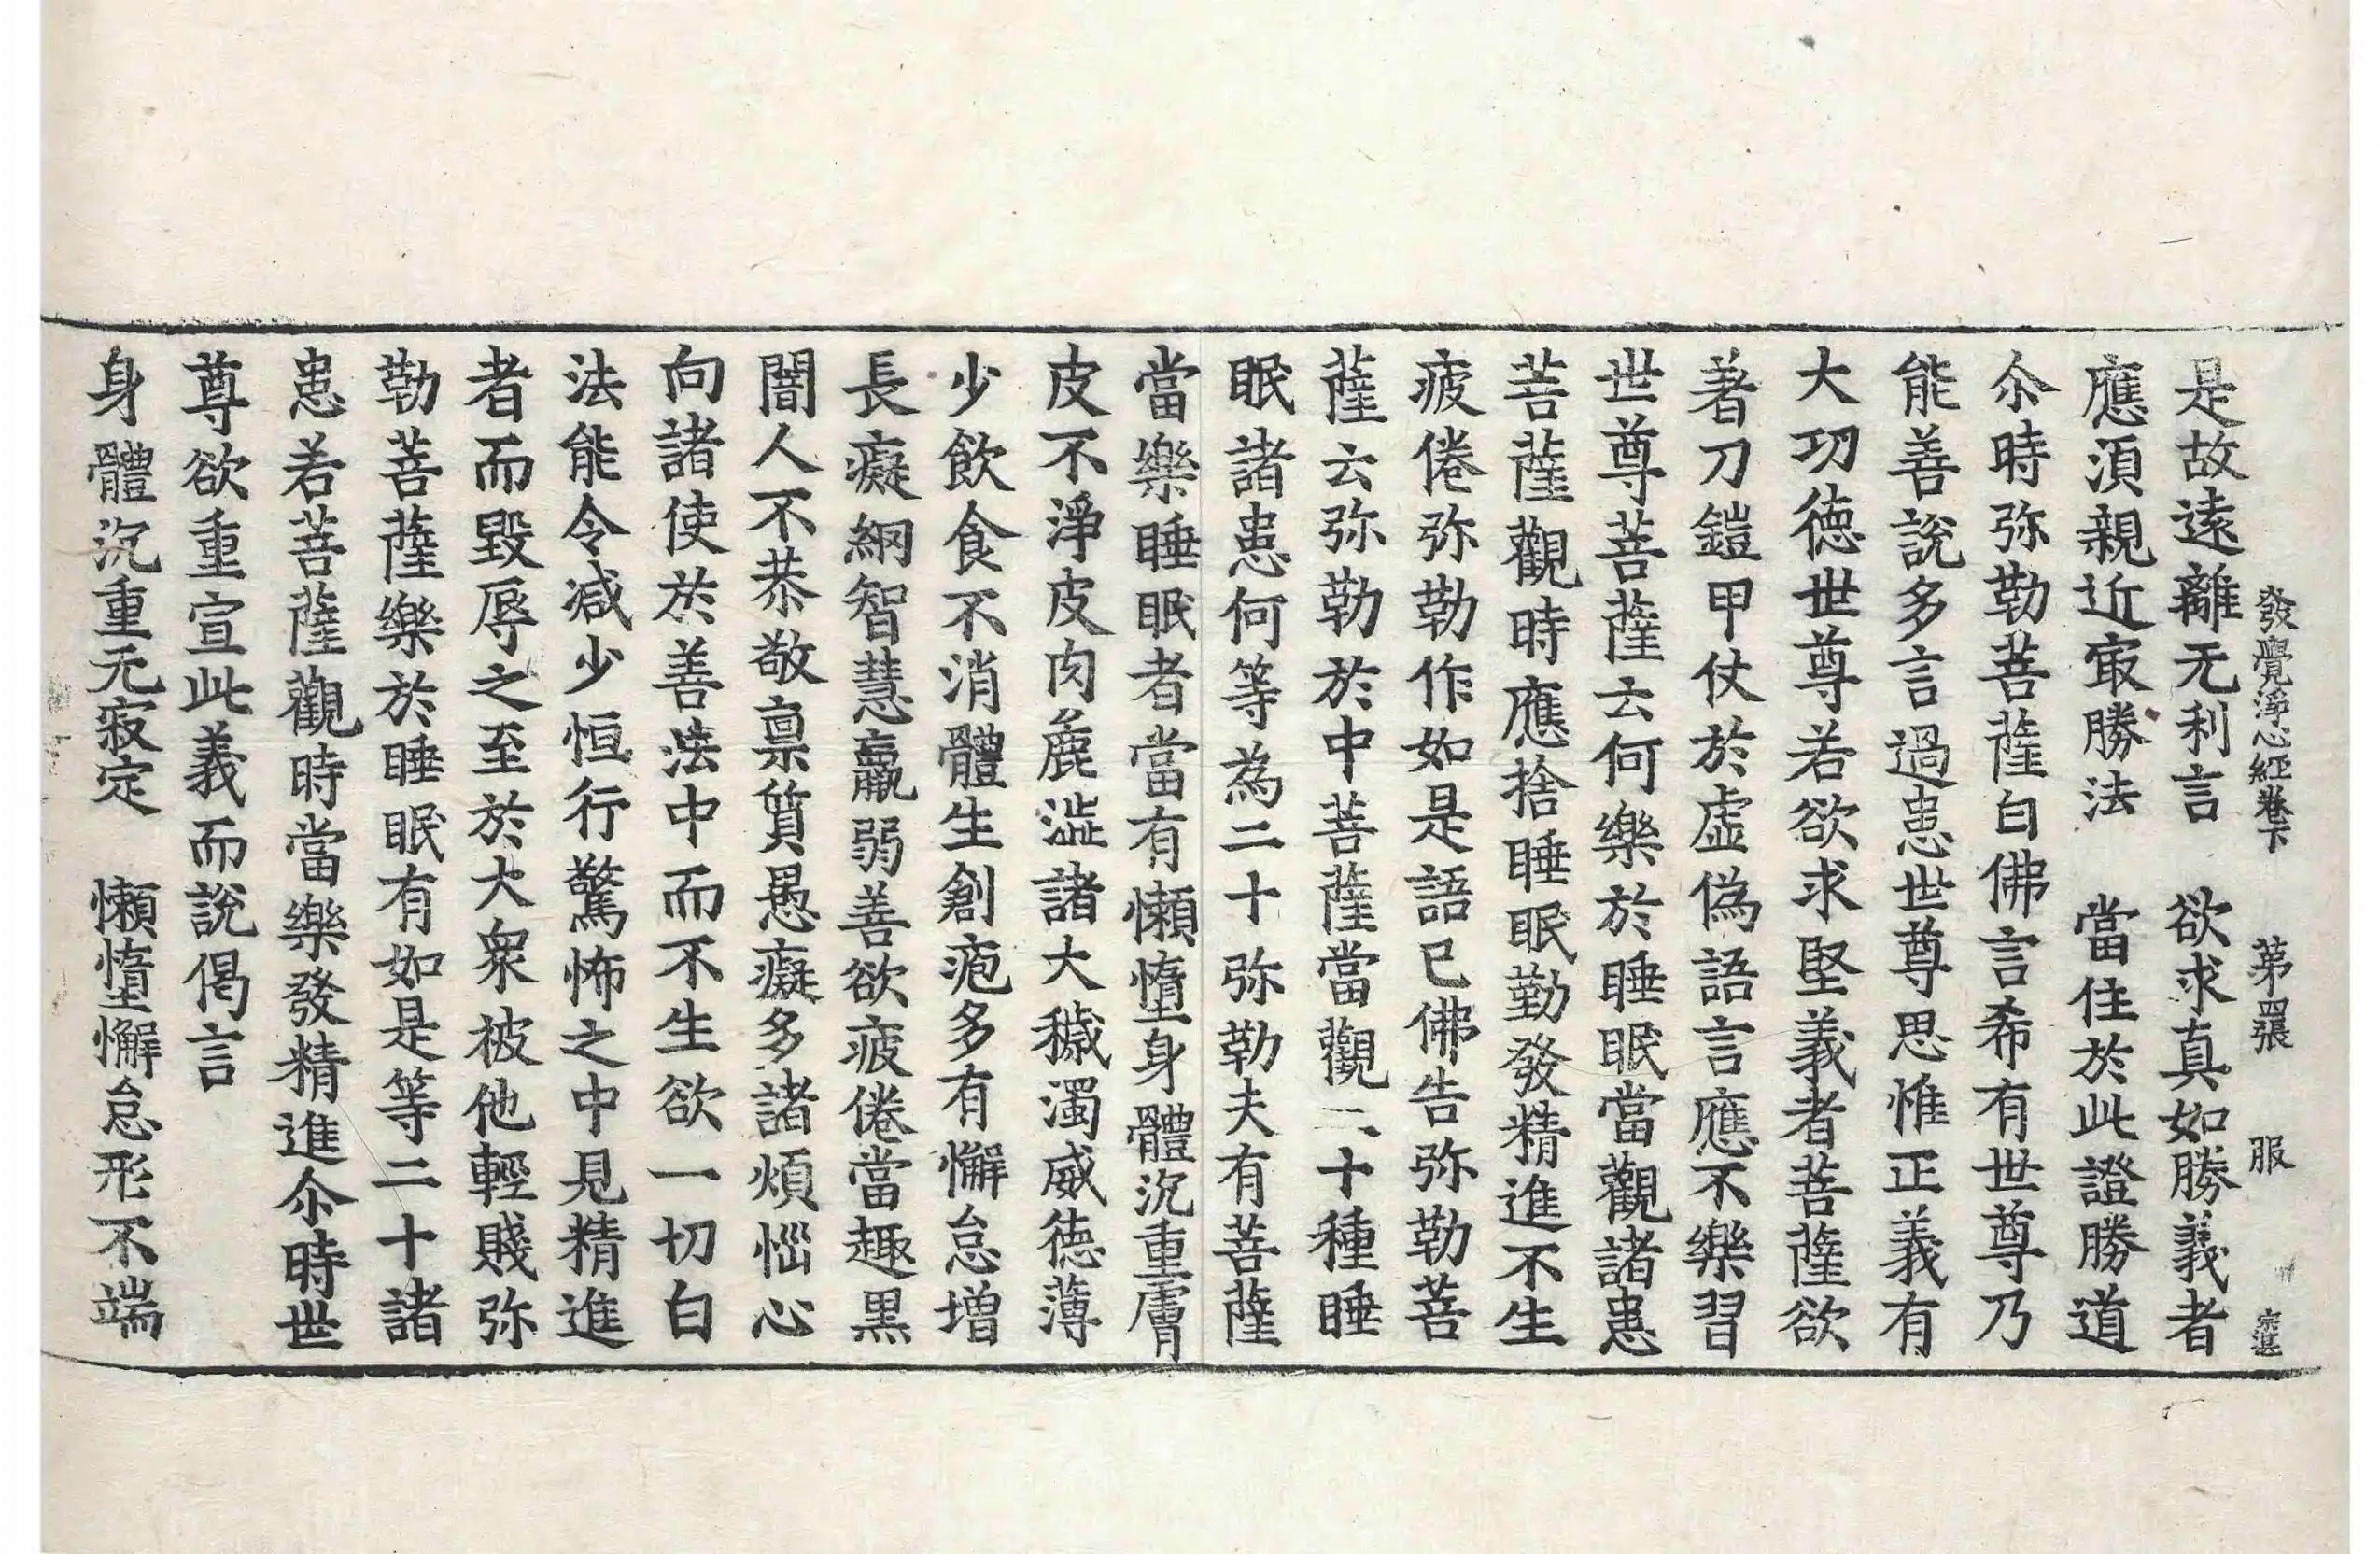 發覺淨心經卷下　第四張　服
是故遠離无利言　欲求真如勝義者
應湏親近㝡勝法　當住於此證勝道
尒時弥勒菩薩白佛言希有世尊乃
能善說多言過患世尊思惟正義有
大功徳世尊若欲求堅義者菩薩欲
著刀鎧甲仗於虛偽語言應不樂習
世尊菩薩云何樂於睡眠當觀諸患
菩薩觀時應捨睡眠勤發精進不生
疲倦弥勒作如是語已佛告弥勒菩
薩云弥勒於中菩薩當觀二十種睡
眠諸患何等為二十弥勒夫有菩薩
當樂睡眠者當有懶惰身體沉重膚
皮不淨皮肉麁澁諸大穢濁威徳薄
少飲食不消體生創疱多有懈怠增
長癡網智慧羸弱善欲疲倦當趣黑
闇人不恭敬禀質愚癡多諸煩惱心
向諸使於善法中而不生欲一切白
法能令減少恒行驚怖之中見精進
者而毀辱之至於大衆被他輕賤弥
勒菩薩樂於睡眠有如是等二十諸
患若菩薩觀時當樂發精進尒時世
尊欲重宣此義而說偈言
身體沉重无寂定　懶惰懈怠形不端